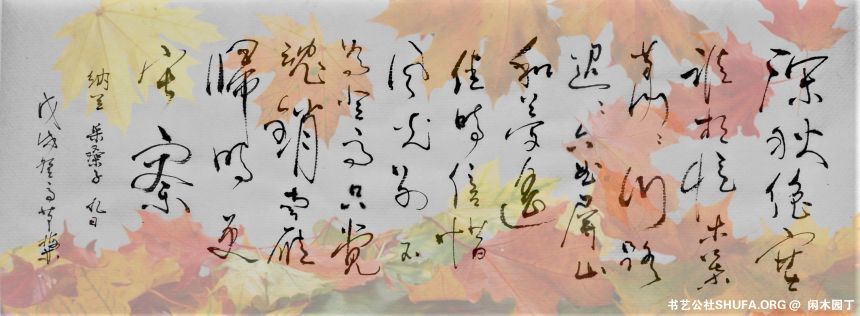 深秋绝塞
谁相忆木葉
萧〻乡路
迢〻六曲屏山
和夢遥
佳時倍惜
风光别不
为登高只觉
魂銷南雁
歸時更
寂寥
纳兰 采桑子 九日
戊戌登高
书艺公社SHUFA.ORG @ 闲木园丁